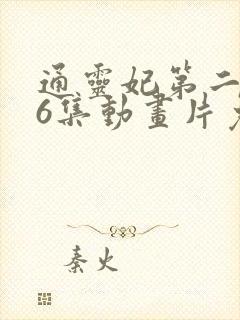 通靈妃第二
6集動畫片
秦火